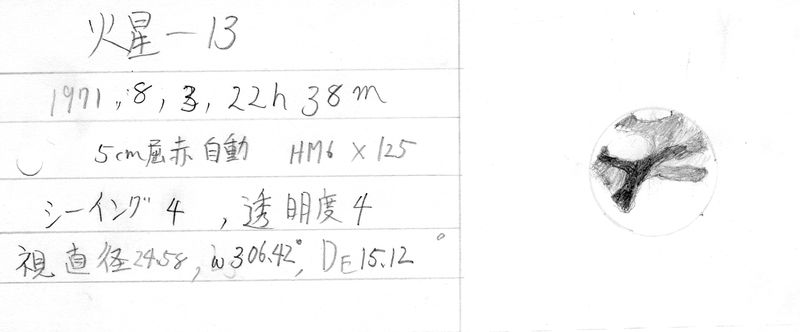 火星-13
1971, 8, 3, 22h 38m
5cm屈赤自動 HM6 × 125
シーイング 4 , 透明度 4
視直径 24.58, ω 306.42°, DE 15.12°